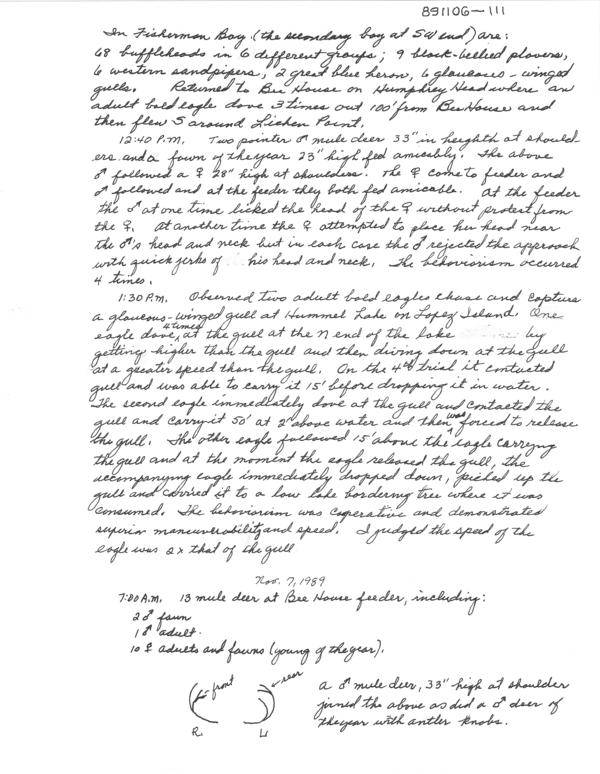 891106-111
In Fisherman Bay (the secondary bay at SW end) are:
68 buffleheads in 6 different groups; 9 black-bellied plovers,
6 western sandpipers, 2 great blue heron, 6 glaucous-winged
gulls. Returned to Bee House on Humphrey Head where an
adult bald eagle dove 3 times out 100' from Bee House and
then flew S around Lichen Point.
12:40 P.M. Two pointer ♂ mule deer 33" in heighth at should-
ers and a fawn of the year 23" high fed amicably. The above
♂ followed a ♀ 28" high at shoulders. The ♀ come to feeder and
♂ followed and at the feeder they both fed amicable. At the feeder
the ♂ at one time licked the head of the ♀ without protest from
the ♀. At another time the ♀ attempted to place her head near
the ♂'s head and neck but in each case the ♂ rejected the approach
with quick jerks of his head and neck. The behaviorism occurred
4 times.
1:30 P.M. Observed two adult bald eagles chase and capture
a glaucous-winged gull at Hummel Lake on Lopez Island. One
eagle dove 4 times at the gull at the N end of the lake by
getting higher than the gull and then diving down at the gull
at a greater speed than the gull. On the 4th trial it contacted
gull and was able to carry it 15' before dropping it in water.
The second eagle immediately dove at the gull and contacted the
gull and carry it 50' at 2" above water and then was forced to release
the gull. The other eagle followed 15' above the eagle carreyng
the gull and at the moment the eagle released the gull, the
accompanyng eagle immediately dropped down, picked up the
gull and carried it to a low lake bordering tree where it was
consumed. The behaviorism was coperative and demonstrated
superior maneuverability and speed. I judged the speed of the
eagle was 2x that of the gull
Nov. 7, 1989
7:00 A.M. 13 mule deer at Bee House feeder, including:
2 ♂ fawn
1 ♂ adult.
10 ♀ adults and fawns (young of the year).
front rear
R L
A ♂ mule deer, 33" high at shoulder
joined the above as did a ♂ deer of
the year with antler knobs.